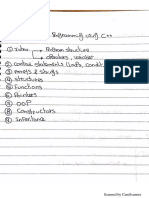 Programming using C++
① Intro → Program structure
→ operators, variables
② control statements (
③ Arrays & strings
④ structures
⑤ Functions
⑥ Pointers
⑦ OOP
⑧ Constructors
⑨ Inheritance
Scanned by CamScanner